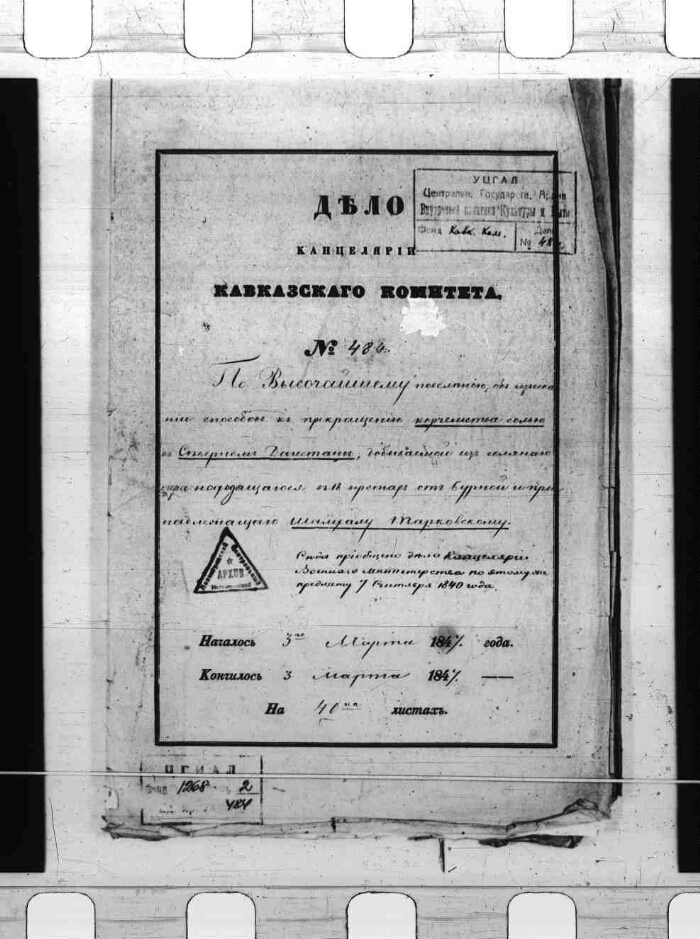 УЦГАЛ
Централн. Государств. Архив
Внутренней политики Культуры и Быта
Фонд Кавк. Ком.
Дело
№ 484
ДѢЛО
КАНЦЕЛЯРІИ
КАВКАЗСКАГО КОМИТЕТА.
№ 484.
По Высочайшему повелѣнію, объ изыска
ніи способовъ къ прекращенію корчемства солью
въ Сѣверномъ Дагестанѣ, добываемой изъ солянаго
озера находящагося въ 18 верстахъ отъ Бурной и при
надлежащаго Шамхалу Тарковскому.
АРХИВ
Сюда пріобщено дѣло Канцеляріи
Военнаго Министерства по этому же
предмету 7 Сентября 1840 года.
Началось 3го Марта 1847. года.
Кончилось 3 марта 1847. —
На 40ка листахъ.
ЦГИАЛ
Фонд 1268
2
484